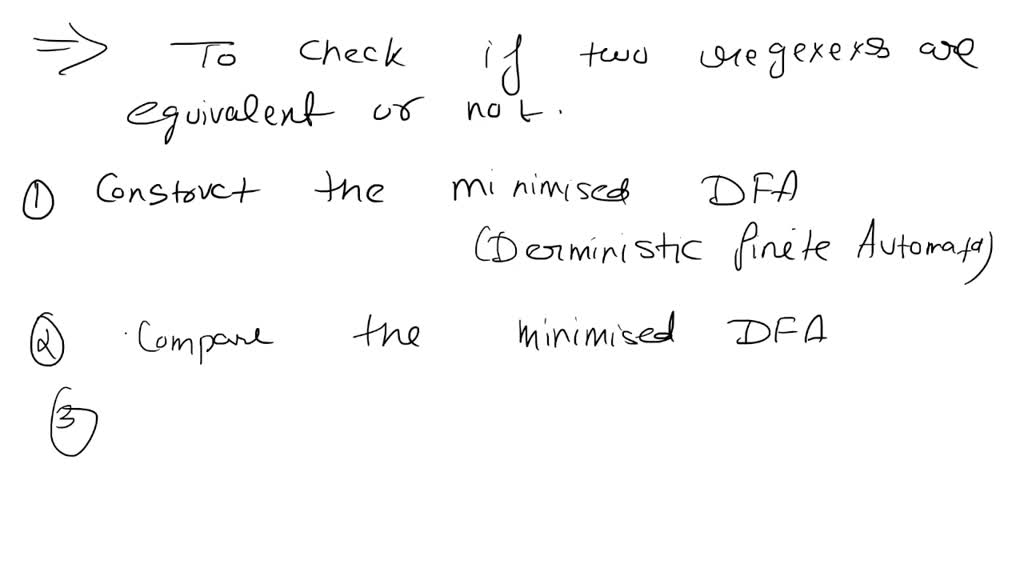 ⇒ To check if two regexexs are
equivalent or not.
① Construct the minimised DFA
(Derministic finite Automata)
② Compare the minimised DFA
③